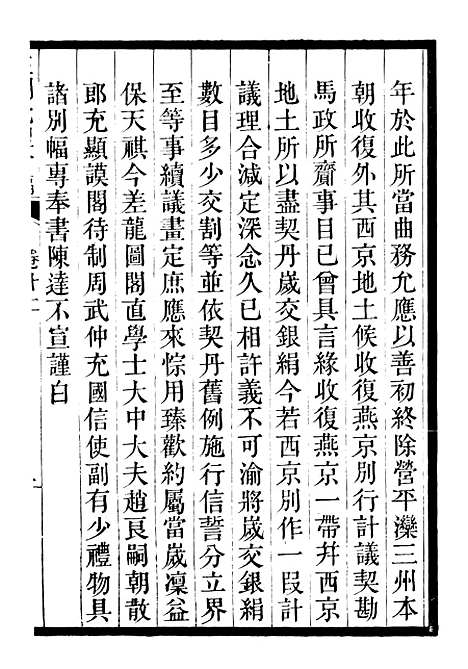 年於此所當曲務允應以善初終除營平灤三州本
朝收復外其西京地土候收復燕京別行計議契勘
馬政所齎事目已曾具言緣收復燕京一帶幷西京
地土所以盡契丹歲交銀絹今若西京別作一段計
議理合減定深念久已相許義不可渝將歲交銀絹
數目多少交割等並依契丹舊例施行信誓分立界
至等事續議畫定庶應來悰用臻歡約屬當歲凜益
保天祺今差龍圖閣直學士大中大夫趙良嗣朝散
郎充顯謨閣待制周武仲充國信使副有少禮物具
諸別幅專奉書陳達不宣謹白
卷十一